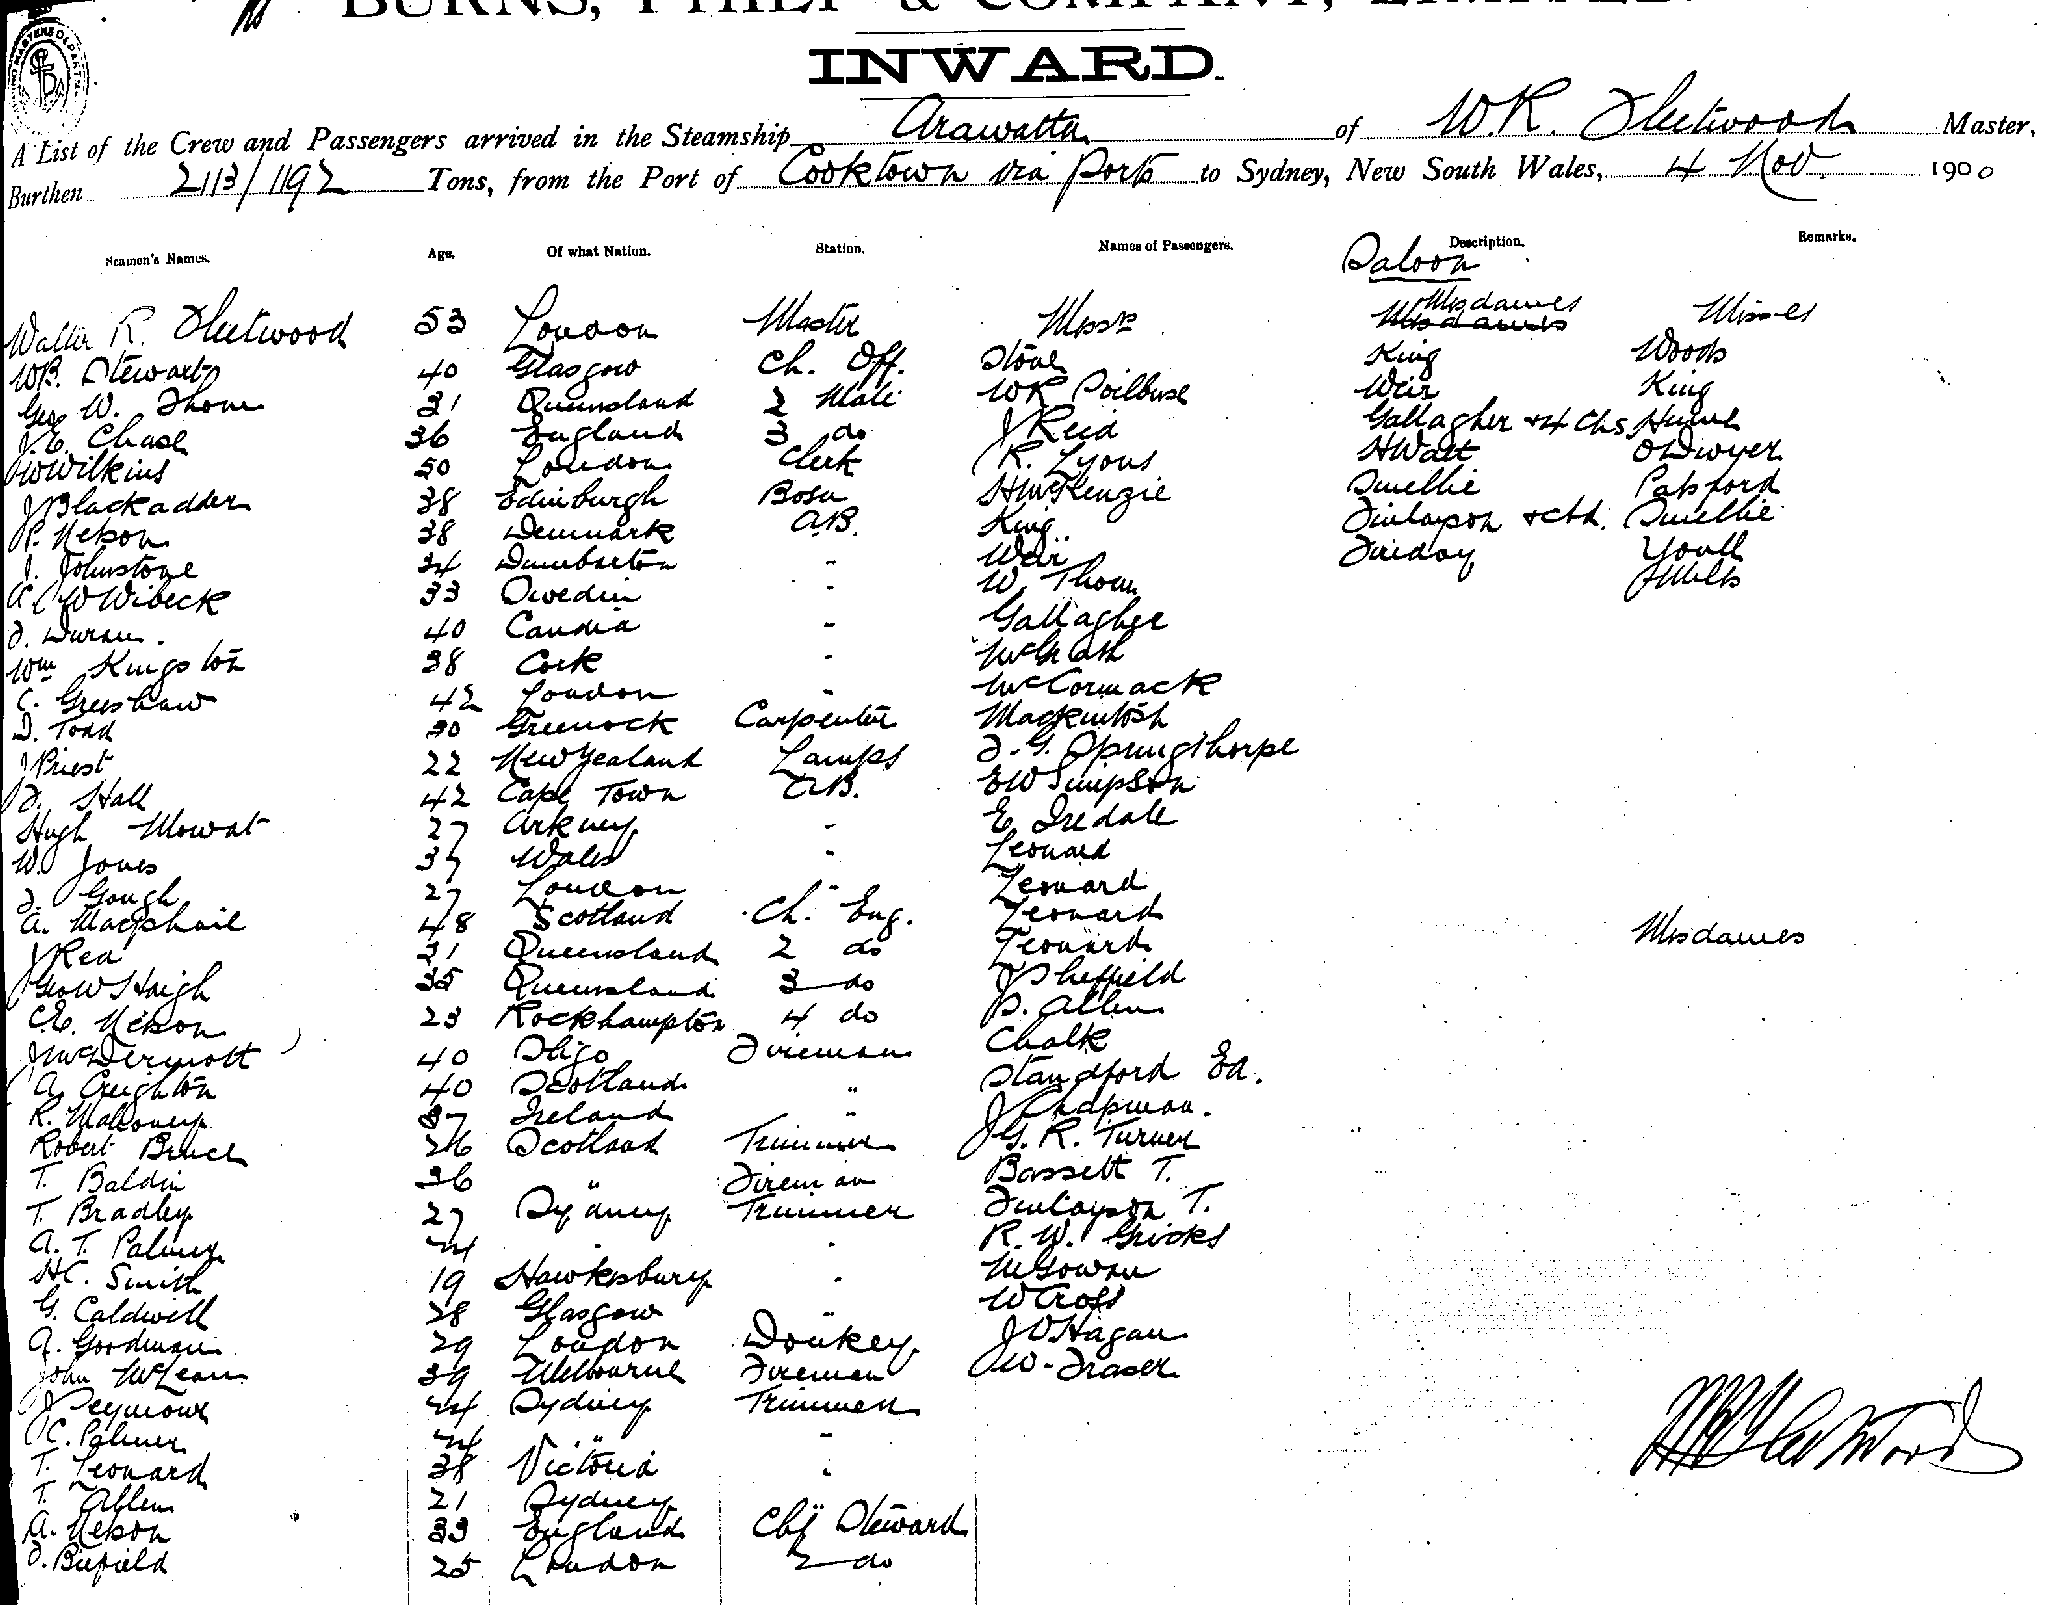 BURNS, PHILP & COMPANY, LIMITED.
INWARD.
A List of the Crew and Passengers arrived in the Steamship Arawatta of W.R. Fleetwood Master,
Burthen 2113/1192 Tons, from the Port of Cooktown via Ports to Sydney, New South Wales, 4 Nov. 1900
Seamen's Names. Age. Of what Nation. Station. Names of Passengers. Description. Remarks.
Saloon
Walter R. Fleetwood 53 London Master Messrs Mesdames Misses
WB. Stewart 40 Glasgow Ch. Off. Stone King Woods
Geo W. Thom 31 Queensland 2 Mate WR Weir King
J.E. Chase 36 England 3 do J Reid Gallagher & 4 Chs Hume
W Wilkins 50 London Clerk R. Lyons H Watt O'Dwyer
J Blackadder 38 Edinburgh Bosn H McKenzie Smellie Patsford
P. Nelson 38 Denmark A.B. King Finlayson & chd. Smellie
J. Johnstone 34 Dumbarton - Weir Friday Youll
A C W Wibeck 33 Sweden - W. Thom J Mills
J. Duran 40 Candia - Gallagher
Wm Kingston 38 Cork - McGrath
C. Greeshaw 42 London - McCormack
D. Todd 30 Greenock Carpenter Mackintosh
J Priest 22 New Zealand Lamps F. G. Springthorpe
F. Hall 42 Cape Town A.B. EW Simpson
Hugh Mowat 27 Orkney - E Iredale
W. Jones 37 Wales - Leonard
J. Gough 27 London " Leonard
A. Macphail 48 Scotland Ch. Eng. Leonard
J Rea 31 Queensland 2 do Leonard Mesdames
Geo W Haigh 35 Queensland 3 do J Sheffield
C.E. Nelson 23 Rockhampton 4 do S. Allen
J McDermott 40 Sligo Fireman Chalk
A. Creighton 40 Scotland " Standford Ed.
R. Malloney 37 Ireland " J Chapman.
Robert Bruce 26 Scotland Trimmer J G. R. Turner
T. Baldin 36 " Fireman Bassett T.
T. Bradley 27 Sydney Trimmer Finlayson T.
A. T. Palmer 24 " R. W. Gricks
HC. Smith 19 Hawksbury " McGowan
G. Caldwell 28 Glasgow " W Cross
A. Goodman 29 London Donkey J O'Hagan
John McLean 39 Melbourne Firemen J W. Fraser
J Seymour 24 Sydney Trimmer
C. Palmer 24 " "
T. Leonard 38 Victoria "
T. Allen 21 Sydney "
A. Nelson 33 England Chf Steward
F. Biefield 25 London 2 do
WR Fleetwood